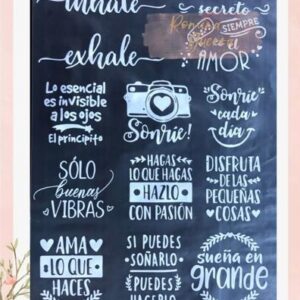 inhale
exhale
secreto
SIEMPRE
AMOR
Lo esencial
es invisible
a los ojos
El principito
Sonríe!
Sonríe
cada
día
SÓLO
buenas
VIBRAS
HAGAS
LO QUE HAGAS
HAZLO
CON PASIÓN
DISFRUTA
DE LAS
PEQUEÑAS
COSAS
AMA
LO QUE
HACES
SI PUEDES
SOÑARLO
PUEDES
HACERLO
sueña en
grande